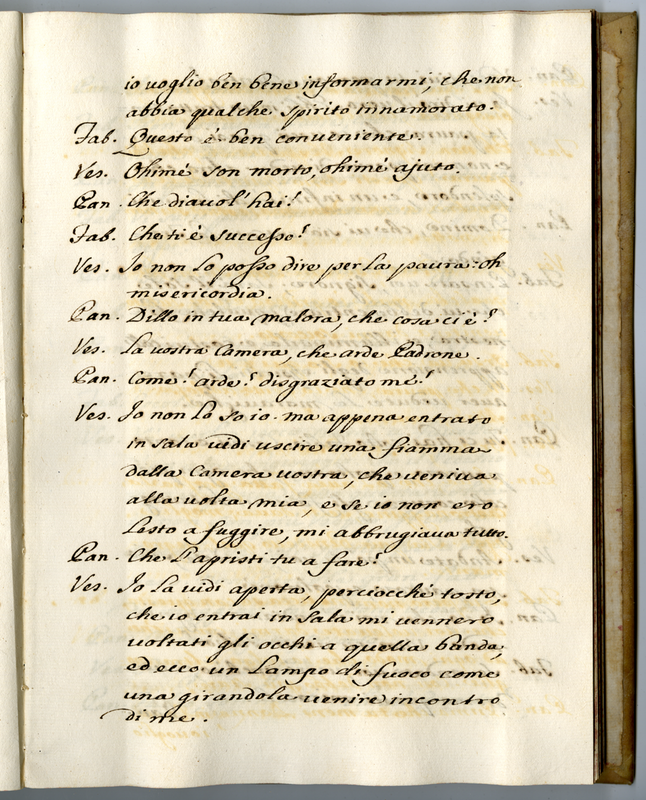 io voglio ben bene informarmi, che non
abbia qualche spirito innamorato.
Fab. Questo è ben conveniente.
Ves. Ohimé son morto, ohimé ajuto.
Pan. Che diavol' hai?
Fab. Che ti é successo?
Ves. Io non lo posso dire per la paura: oh
misericordia.
Pan. Dillo in tua malora, che cosa ci é?
Ves. La vostra Camera, che arde Padrone.
Pan. Come? arde? disgraziato mé?
Ves. Io non lo so io. ma appena entrato
in sala vidi uscire una fiamma
dalla Camera vostra, che veniva
alla volta mia, e se io non ero
lesto a fuggire, mi abbrugiava tutto.
Pan. Che l'apristi tu a fare?
Ves. Io la vidi aperta, perciocché tosto,
che io entrai in sala mi vennero
voltati gli occhi a quella banda,
ed ecco un lampo di fuoco come
una girandola venire incontro
di me.